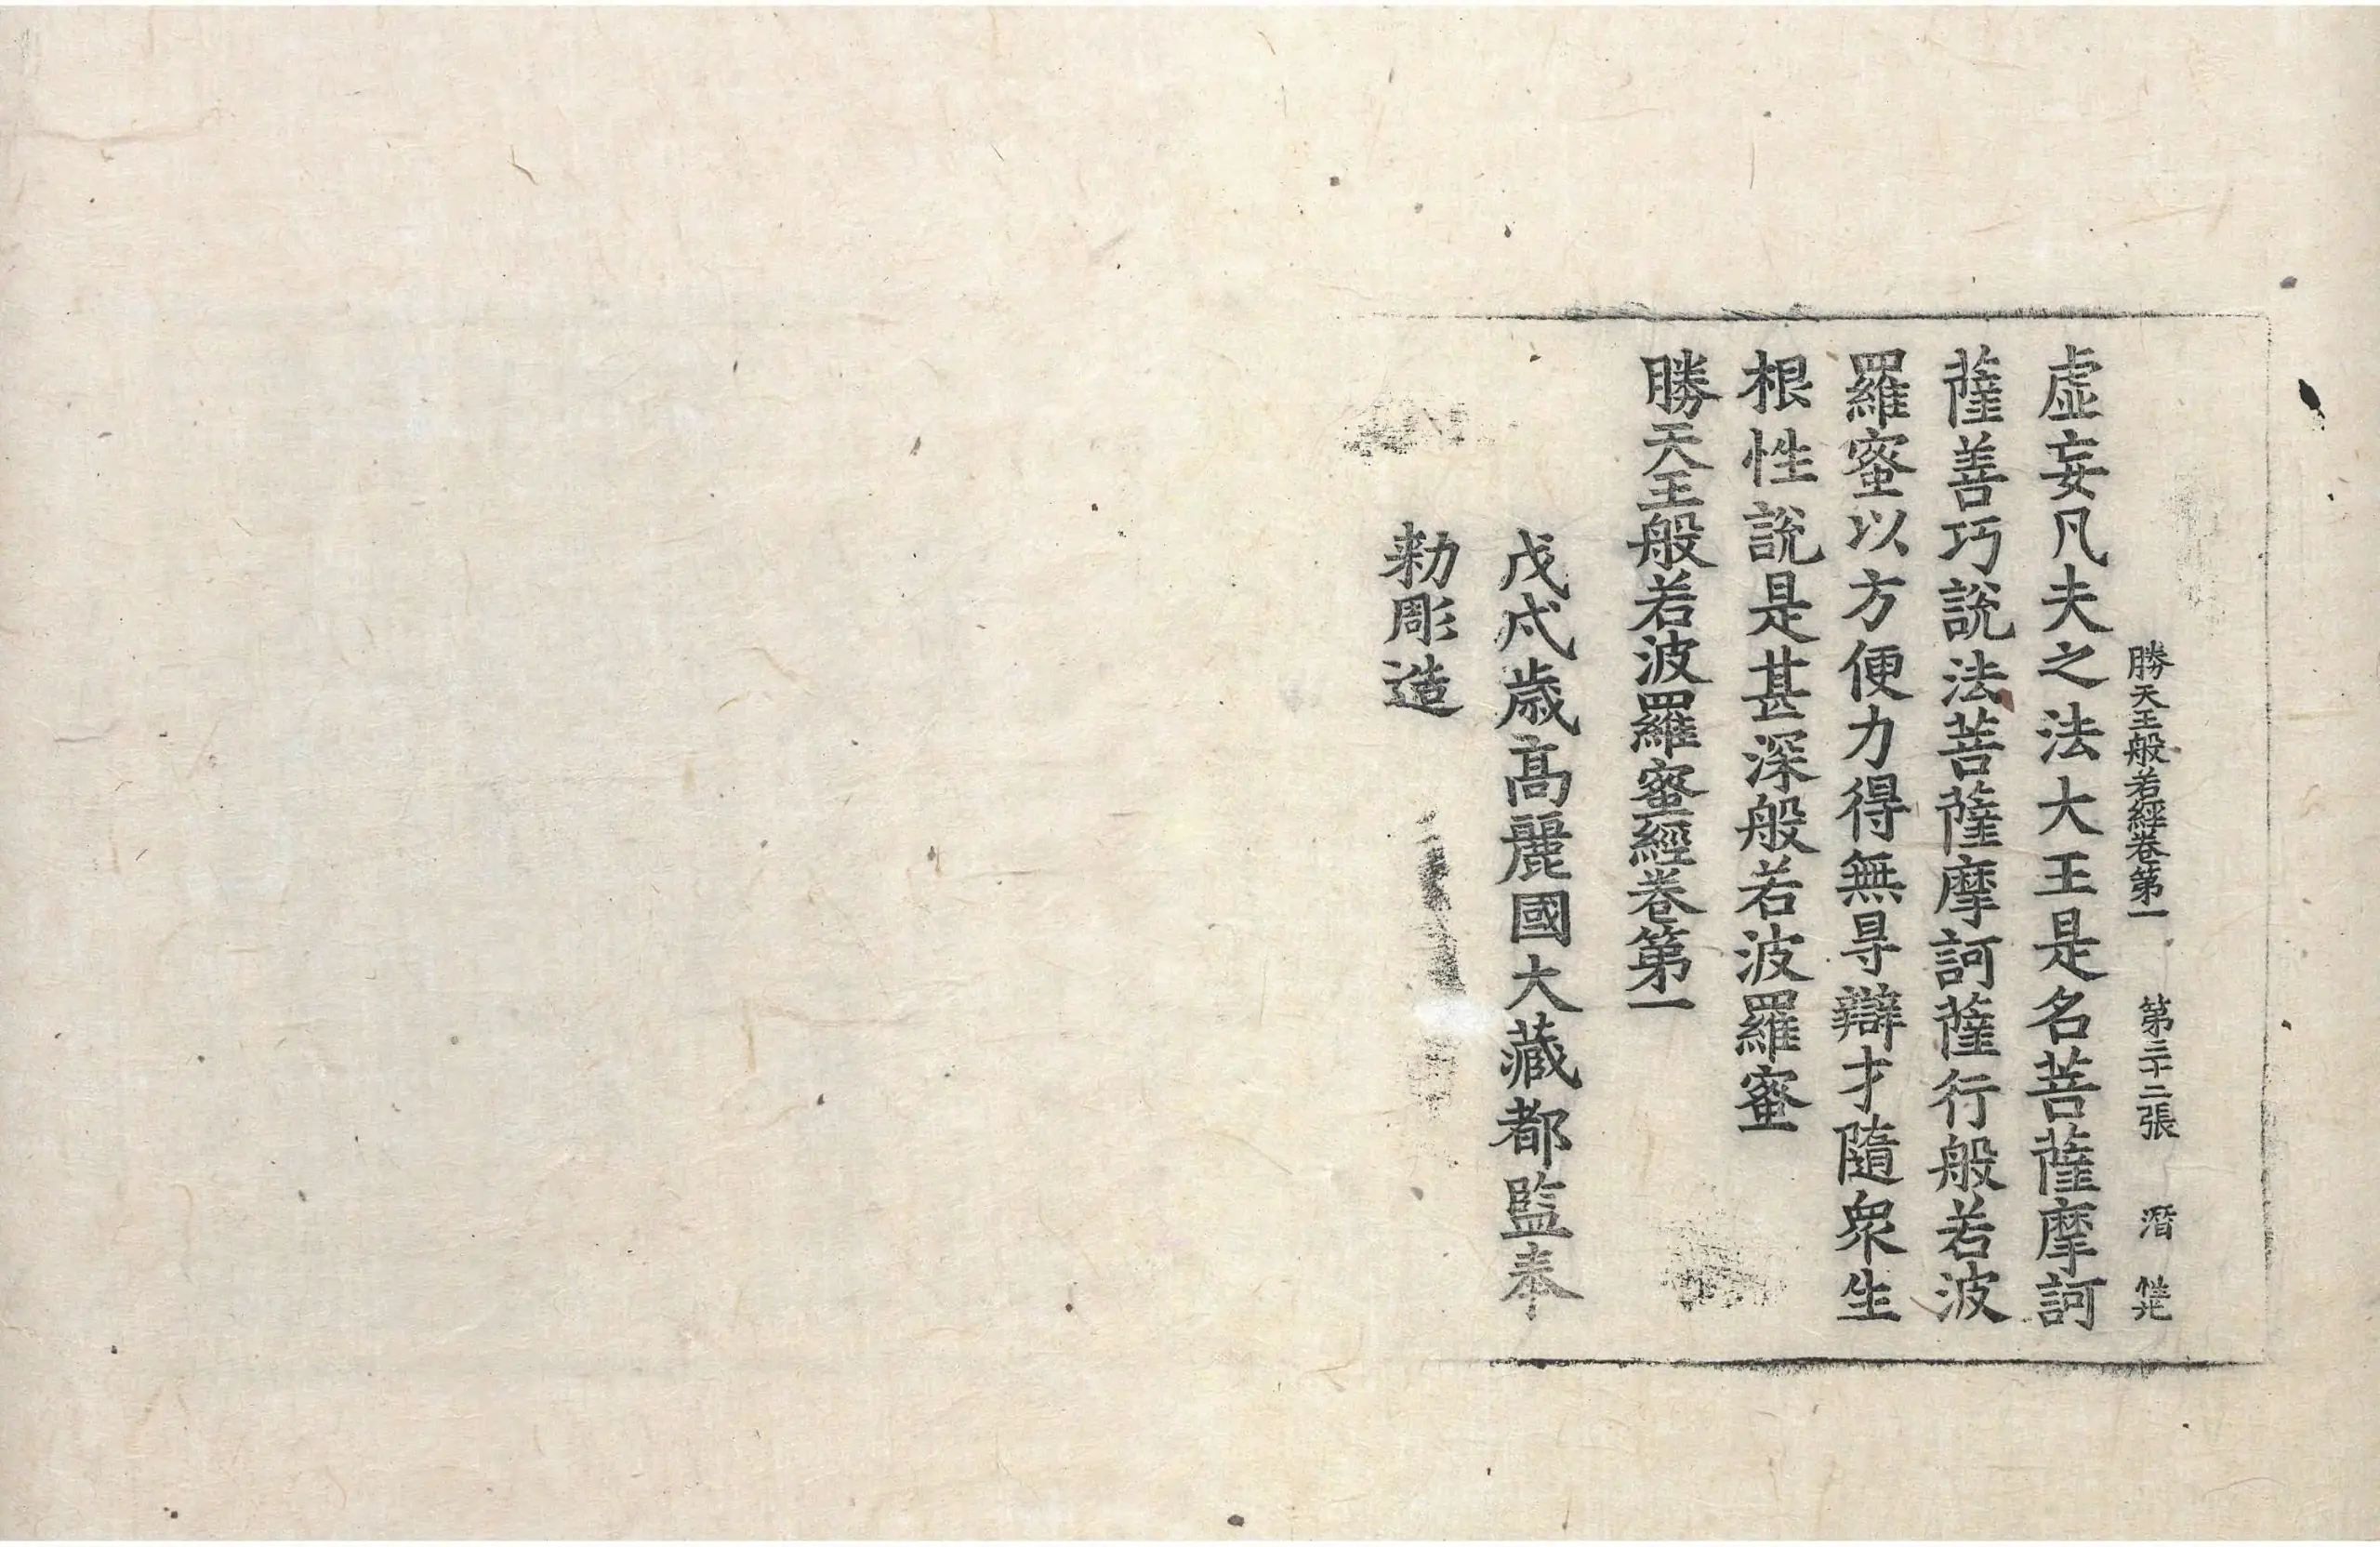 勝天王般若經卷第一 第三十二張 潛
虛妄凡夫之法大王是名菩薩摩訶
薩善巧說法菩薩摩訶薩行般若波
羅蜜以方便力得無㝵辯才隨衆生
根性說是甚深般若波羅蜜
勝天王般若波羅蜜經卷第一
戊戌歲高麗國大藏都監奉
勅彫造